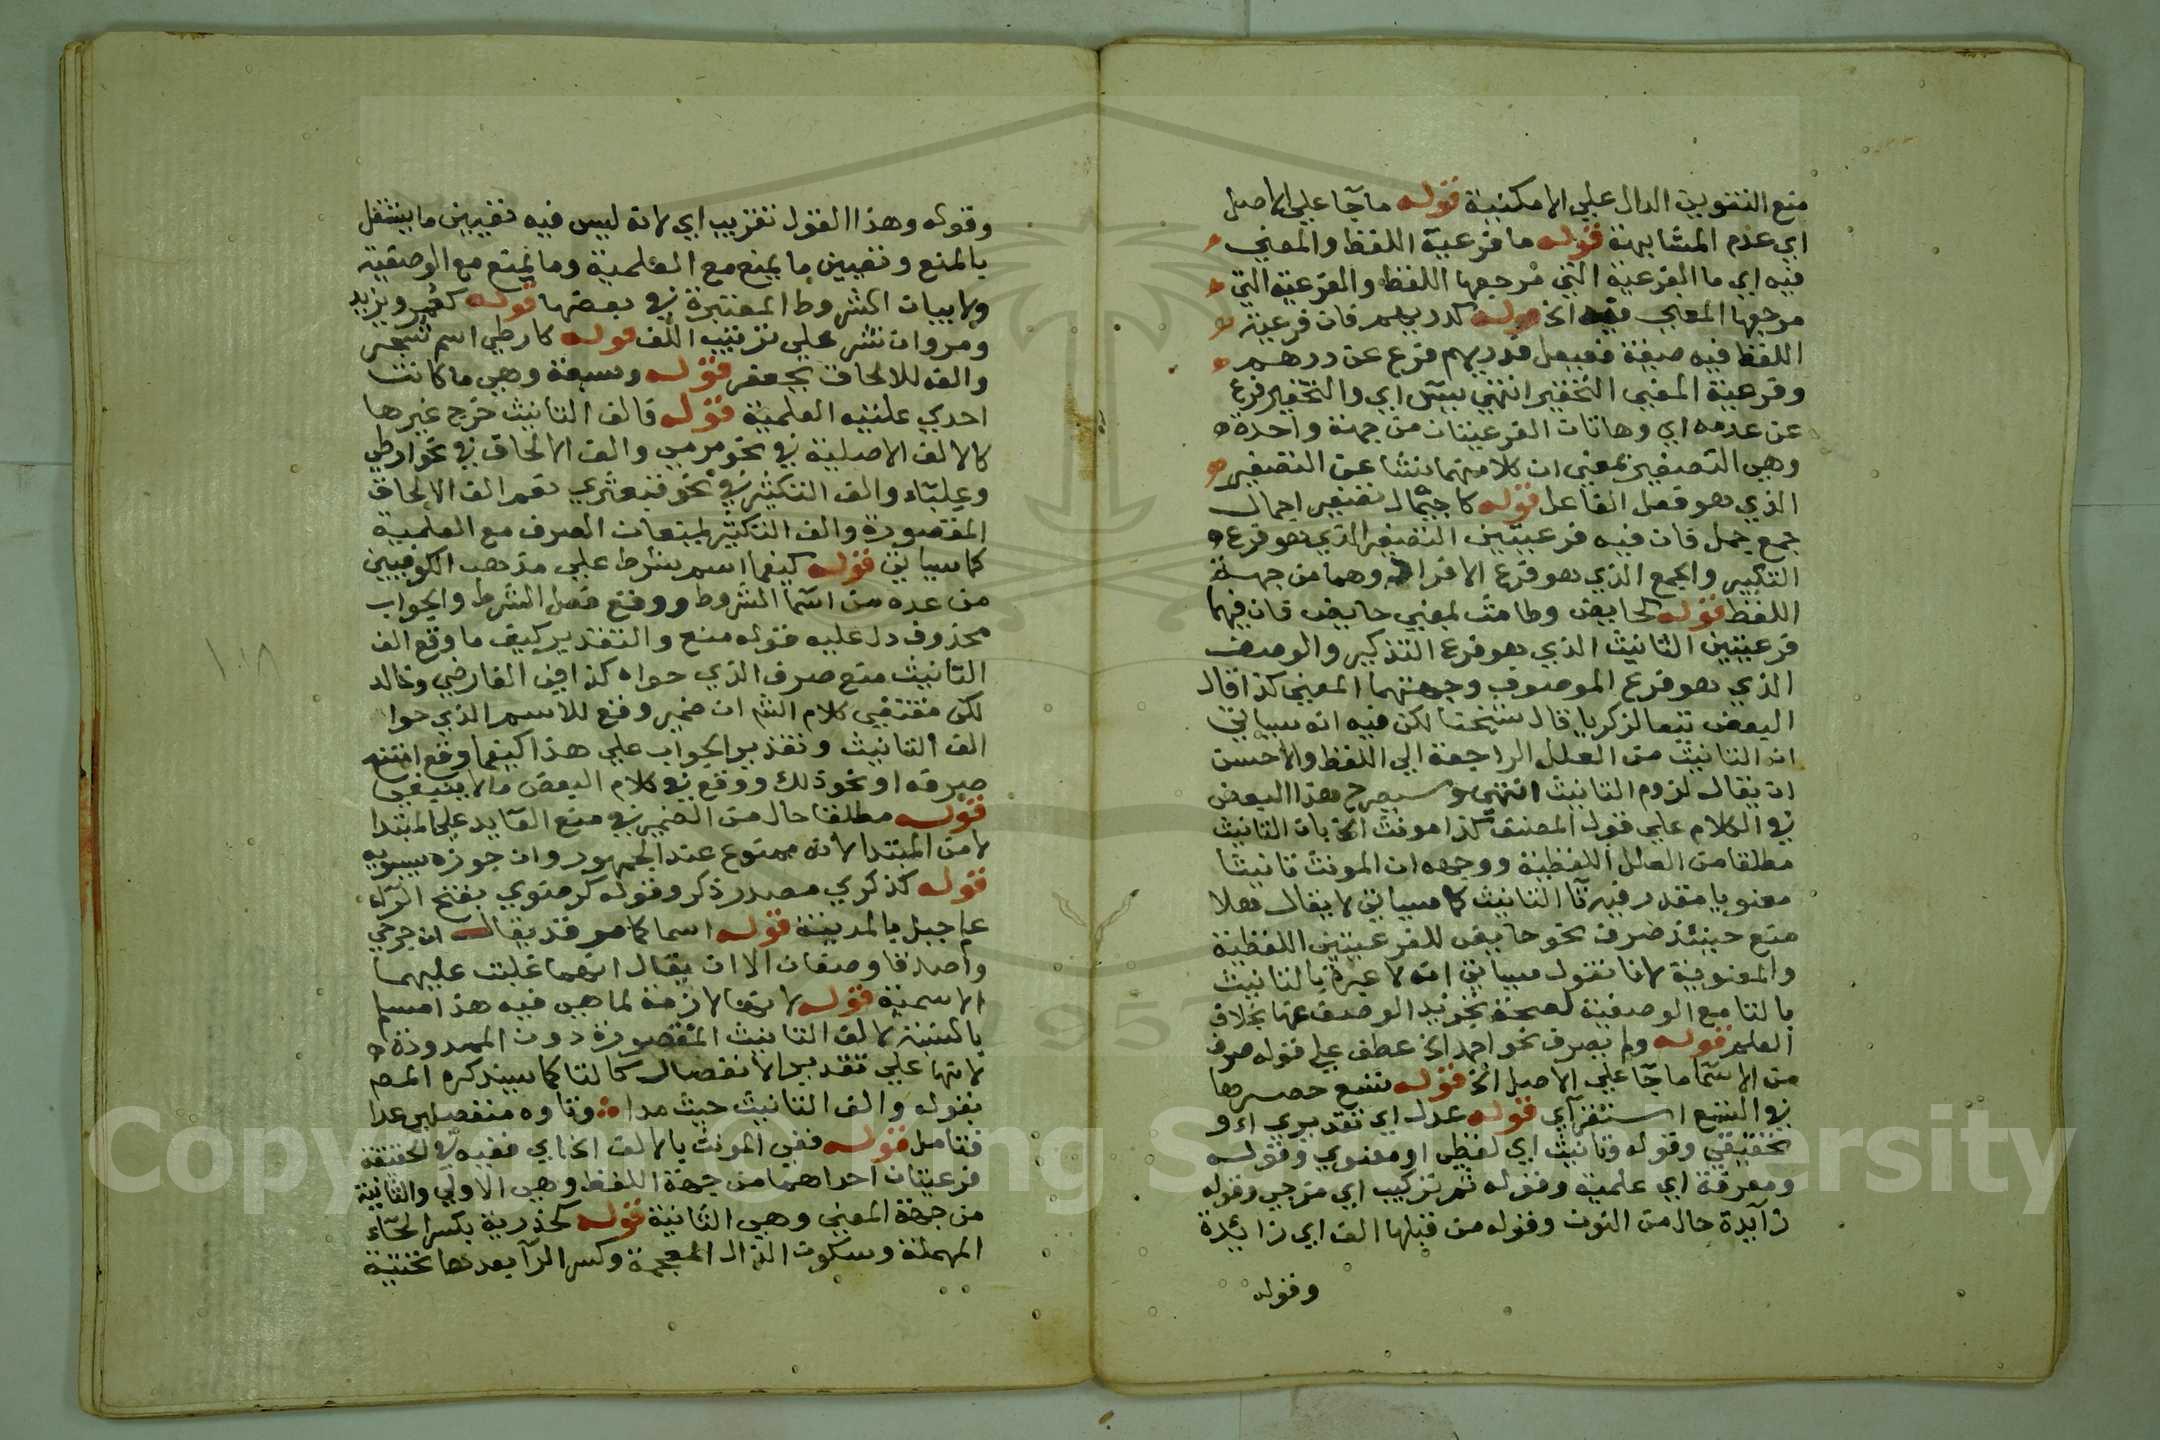 منع التنوين الدال علي الامكنية قوله ما جآ علي الاصل
اي عدم المشابهة قوله ما فرعية اللفظ والمعني
فيه اي ما الفرعية التي مرجعها اللفظ والفرعية التي
مرجعها المعني فيه الخ قوله كدريهم فان فرعية
اللفظ فيه صيغة فعيعل فدريهم فرع عن درهم
وفرعية المعني التحقير انتهي يس اي والتحقير فرع
عن عدمه اي وهاتان الفرعيتان من جهة واحدة
وهي التصغير بمعني ان كلا منهما نشا عن التصغير
الذي هو فعل الفاعل قوله كاجيمال تصغير اجمال
جمع جمل فان فيه فرعيتين التصغير الذي هو فرع
التكبير والجمع الذي هو فرع الافراد وهما من جهة
اللفظ قوله كحايض وطامث بمعني حايض فان فيهما
فرعيتين التانيث الذي هو فرع التذكير والوصف
الذي هو فرع الموصوف وجهتهما المعني كذا قال
البعض تبعا لزكريا قال شيخنا لكن فيه انه سياتي
ان التانيث من العلل الراجعة الي اللفظ والاحسن
ان يقال لزوم التانيث انتهي وسيصرح هذا البعض
في الكلام علي قول المصنف كذا مونث الخ بان التانيث
مطلقا من العلل اللفظية ووجهه ان المونث تانيثا
معنويا مقدر فيه تآ التانيث كما سياتي لا يقال هلا
منع حينئذ صرف نحو حايض للفرعيتين اللفظية
والمعنوية لانا نقول سياتي انه لا عبرة بالتانيث
بالتا مع الوصفية لصحة تجريد الوصف عنها بخلاف
العلم قوله ولم يصرف نحو احمد الخ عطف علي قوله صرف
من الاسما ما جآ علي الاصل الخ قوله تسع حصرها
في التسع استقرآي قوله عدل اي تقديري او
تحقيقي وقوله وتانيث اي لفظي او معنوي وقوله
ومعرفة اي علمية وقوله ثم تركيب اي مزجي وقوله
زآيدة حال من النون وقوله من قبلها الف اي زائدة
وقوله
وقوله وهذا القول تقريب اي لانه ليس فيه تعيين ما يستقل
بالمنع وتعيين ما يمنع مع العلمية وما يمنع مع الوصفية
ولا بيان الشروط المعتبرة في بعضها قوله كعمر ويزيد
ومروان نشر علي ترتيب اللف قوله كارطي اسم شجر
والفه للالحاق بجعفر قوله وسعة وهي ما كانت
احدي علتيه العلمية قوله فالف التانيث خرج غيرها
كالالف الاصلية في نحو مرمي والف الالحاق في نحو ارطي
وعلبآء والف التكثير في نحو قبعثري نعم الف الالحاق
المقصورة والف التكثير يمنعان الصرف مع العلمية
كما سياتي قوله كيفما اسم شرط علي مذهب الكوفيين
من عده من اسما الشروط ووقع فعل الشرط والجواب
محذوف دل عليه قوله منع والتقدير كيف ما وقع الف
التانيث منع صرف الذي حواه كذا في الفارضي وخالد
لكن مقتضي كلام الشم ان ضمير وقع للاسم الذي حوا
الف التانيث وتقدير الجواب علي هذا كيفما وقع امتنع
صرفه او نحو ذلك ووقع في كلام البعض ما لا ينبغي
قوله مطلقا حال من الضمير في منع العآيد علي المبتدا
لا من المبتدا لانه ممنوع عند الجمهور وان جوزه سيبويه
قوله كذكري مصدر ذكر وقوله كرضوي بفتح الرآء
علم جبل بالمدينة قوله اسما كما مر قد يقال ان جرحي
واصدقا وصفان الا ان يقال انهما غلبت عليهما
الاسمية قوله لانها لازمة لما هي فيه هذا مسلم
بالنسبة لالف التانيث المقصورة دون الممدودة
لانها علي تقدير الانفصال كالتا كما سيذكره المص
بقوله والف التانيث حيث مدا وتاوه منفصلين عدا
فتامل قوله ففي المونث بالالف الخ اي ففيه في الحقيقة
فرعيتان احداهما من جهة اللفظ وهي الاولي والثانية
من جهة المعني وهي الثانية قوله كحذرية بكسر الحآء
المهملة وسكون الذال المعجمة وكسر الرآ بعدها تحتية
١٠٨
Copyright © King Saud University
1957